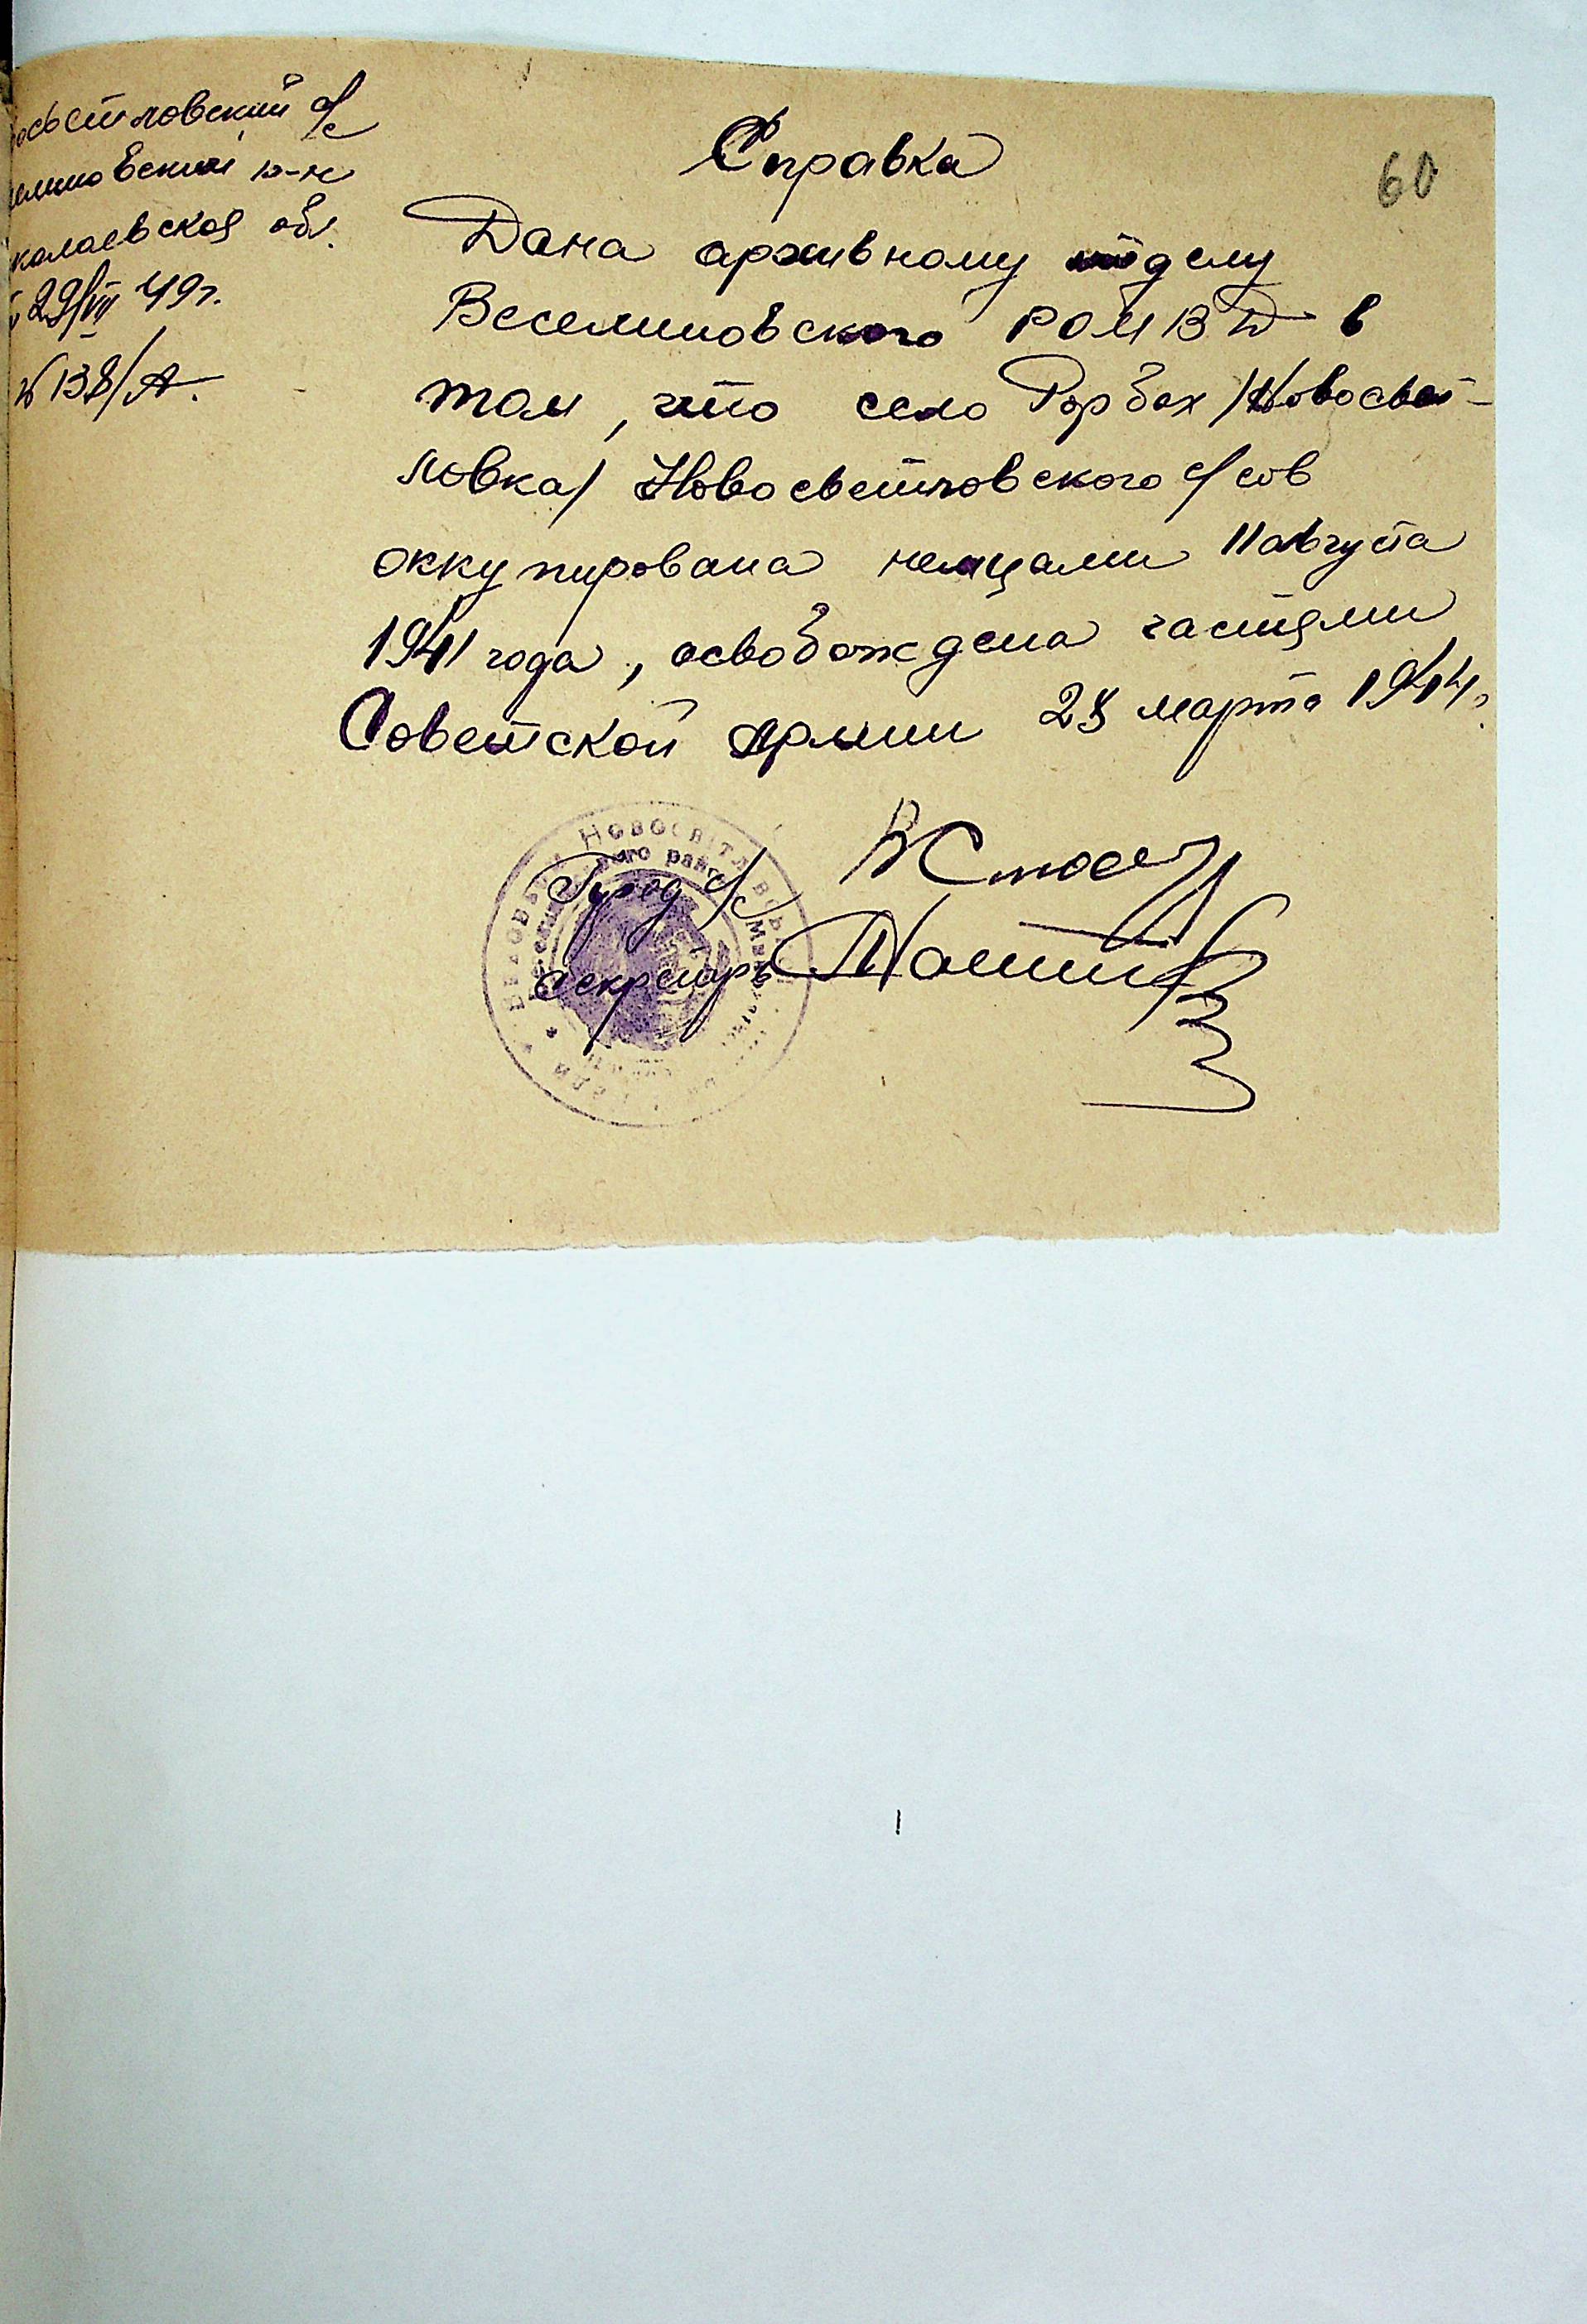 осветловский с/с
елиновский р-н
колаевская обл.
29/VII 49 г.
№ 138/А.
Справка
60
Дана архивному отделу
Веселиновского РОМВД в
том, что село Рорбах /Новосвет-
ловка/ Новосветловского с/сов
оккупирована немцами 11 августа
1941 года, освобождена частями
Советской Армии 28 марта 1944 г.
Пред с/с
секретарь